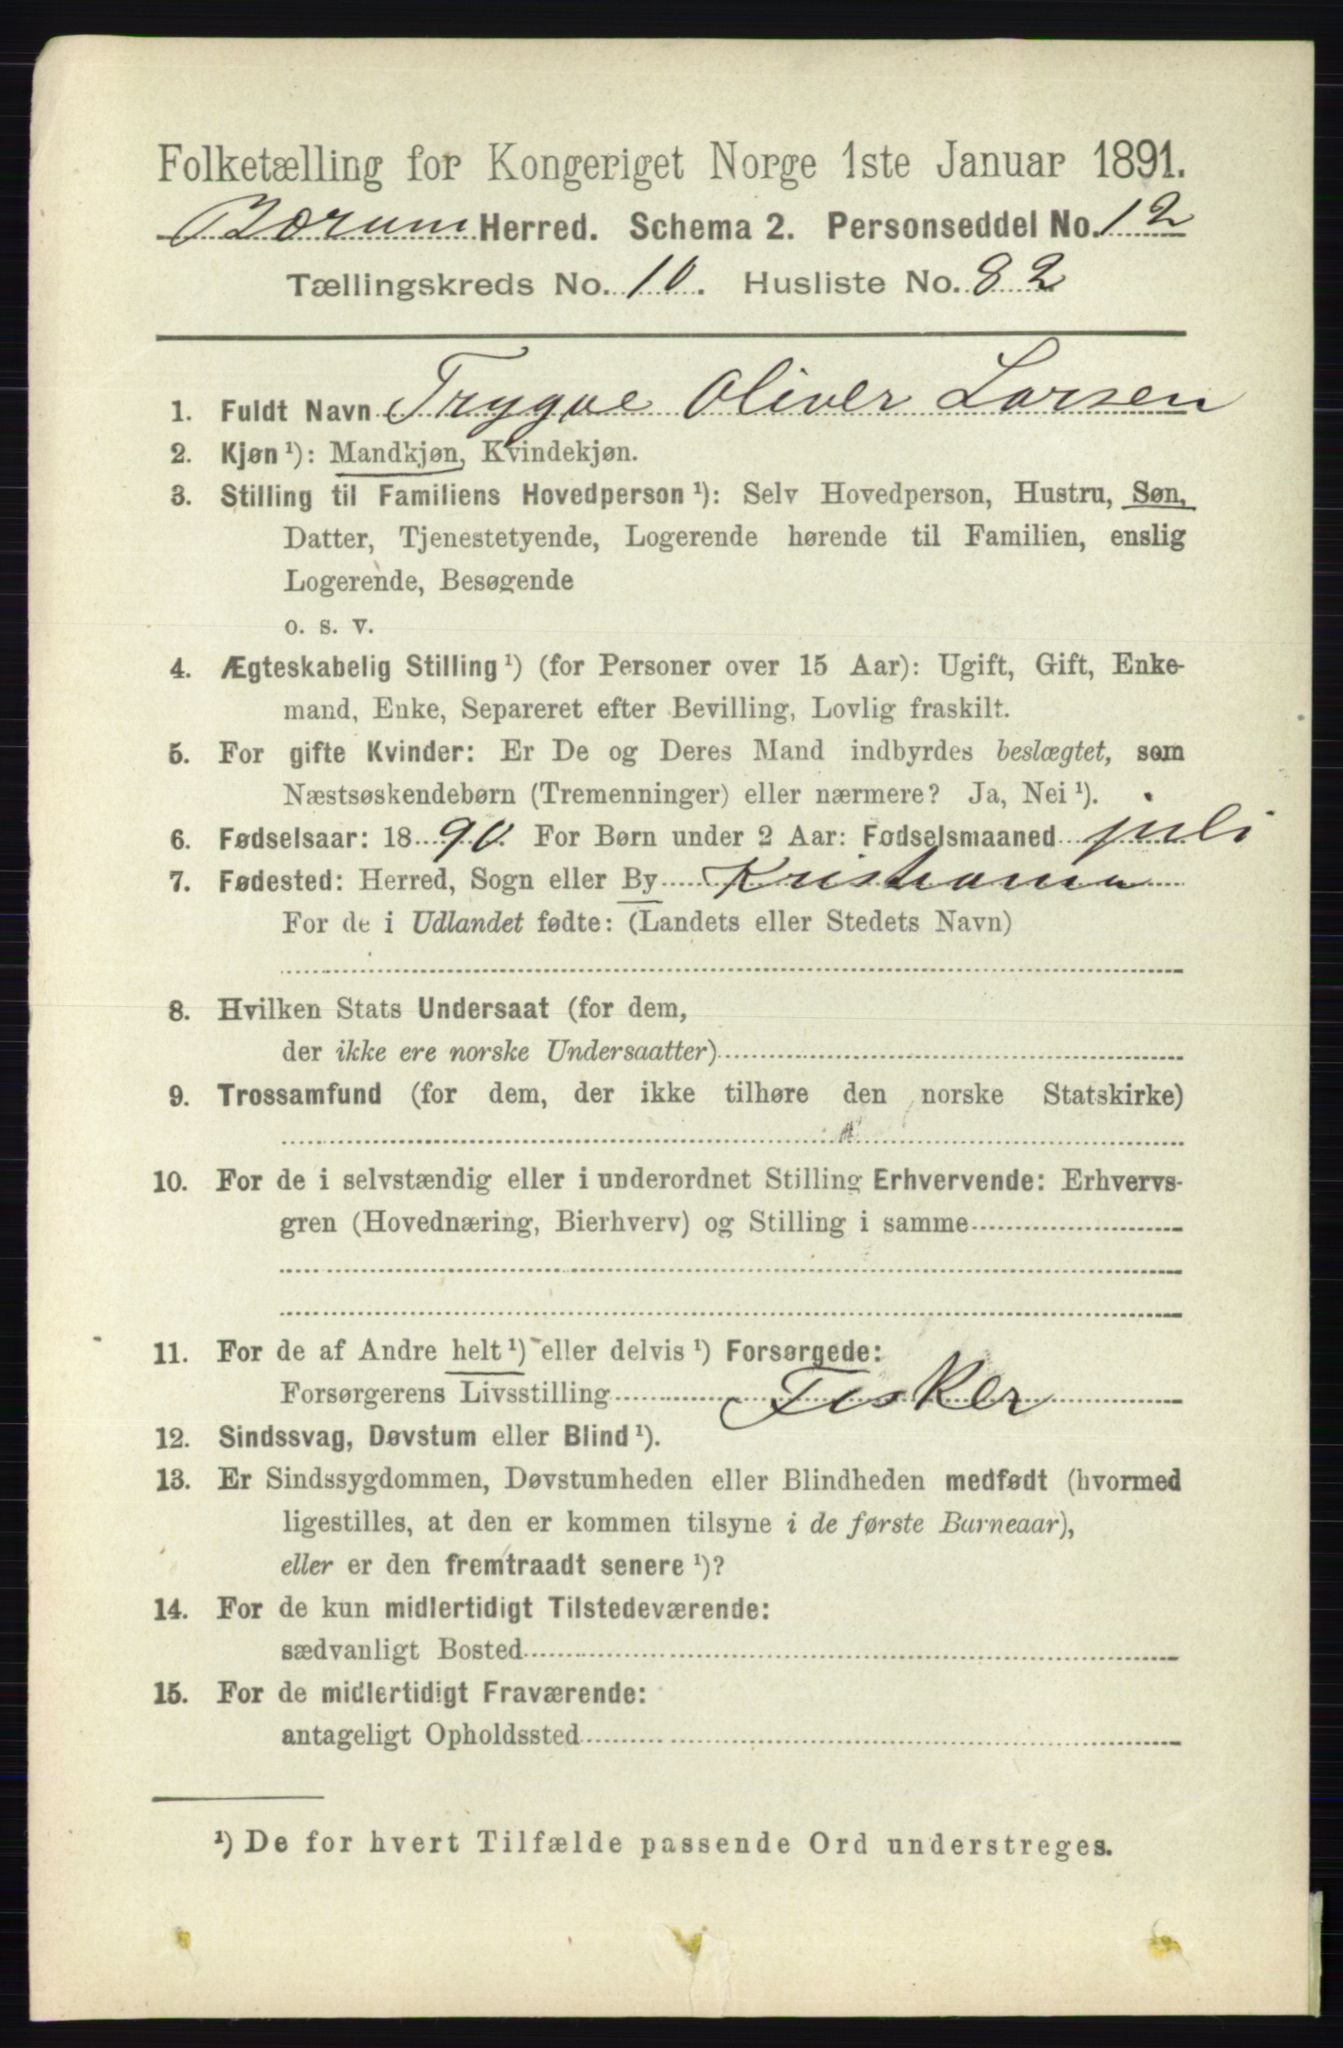 Folketælling for Kongeriget Norge 1ste Januar 1891.
Bærum Herred. Schema 2. Personseddel No. 12
Tællingskreds No. 10. Husliste No. 82
1. Fuldt Navn Trygve Oliver Larsen
2. Kjøn ¹): Mandkjøn, Kvindekjøn.
3. Stilling til Familiens Hovedperson ¹): Selv Hovedperson, Hustru, Søn,
Datter, Tjenestetyende, Logerende hørende til Familien, enslig
Logerende, Besøgende
o. s. v.
4. Ægteskabelig Stilling ¹) (for Personer over 15 Aar): Ugift, Gift, Enke-
mand, Enke, Separeret efter Bevilling, Lovlig fraskilt.
5. For gifte Kvinder: Er De og Deres Mand indbyrdes beslægtet, som
Næstsøskendebørn (Tremenninger) eller nærmere? Ja, Nei ¹).
6. Fødselsaar: 1890. For Børn under 2 Aar: Fødselsmaaned juli
7. Fødested: Herred, Sogn eller By Kristiania
For de i Udlandet fødte: (Landets eller Stedets Navn)
8. Hvilken Stats Undersaat (for dem,
der ikke ere norske Undersaatter)
9. Trossamfund (for dem, der ikke tilhøre den norske Statskirke)
10. For de i selvstændig eller i underordnet Stilling Erhvervende: Erhvervs-
gren (Hovednæring, Bierhverv) og Stilling i samme
11. For de af Andre helt ¹) eller delvis ¹) Forsørgede:
Forsørgerens Livsstilling Fisker
12. Sindssvag, Døvstum eller Blind ¹).
13. Er Sindssygdommen, Døvstumheden eller Blindheden medfødt (hvormed
ligestilles, at den er kommen tilsyne i de første Barneaar),
eller er den fremtraadt senere ¹)?
14. For de kun midlertidigt Tilstedeværende:
sædvanligt Bosted
15. For de midlertidigt Fraværende:
antageligt Opholdssted
¹) De for hvert Tilfælde passende Ord understreges.